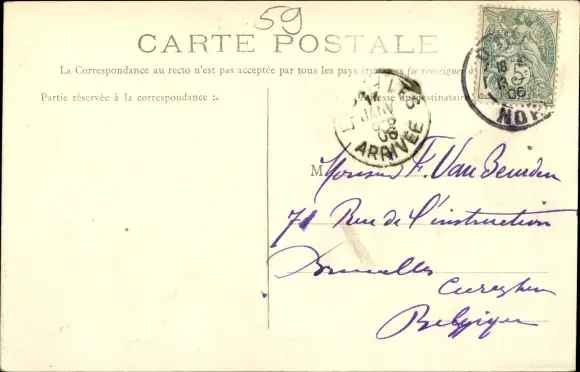 59
CARTE POSTALE
La Correspondance au recto n'est pas acceptée par tous les pays étrangers (se renseigner à
Partie réservée à la correspondance :
destinataire
JANV
ARRIVÉE
18
13
06
NOR
Monsieur F. Van Beurden
71 Rue de l'instruction
Bruxelles
Cureghem
Belgique